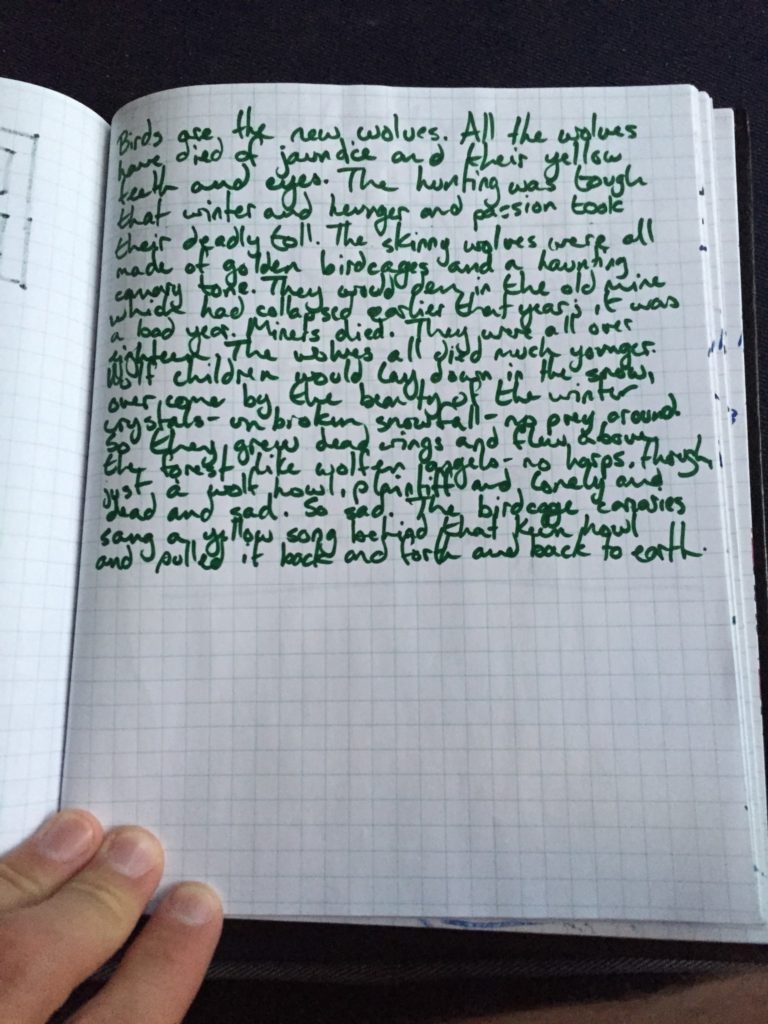 Birds are the new wolves. All the wolves
have died of jaundice and their yellow
teeth and eyes. The hunting was tough
that winter and hunger and passion took
their deadly toll. The skinny wolves were all
made of golden birdcages and a haunting
canary tone. They would den in the old mine
which had collapsed earlier that year; it was
a bad year. Miners died. They were all over
eighteen. The wolves all died much younger.
Wolf children would lay down in the snow,
over come by the beauty of the winter
crystals - unbroken snowfall - no prey around.
So they grew dead wings and flew above
the forest like wolfen angels - no harps, though,
just a wolf howl, plaintiff and lonely and
dead and sad. So sad. The birdcage canaries
sang a yellow song behind that keen howl
and pulled it back and forth and back to earth.